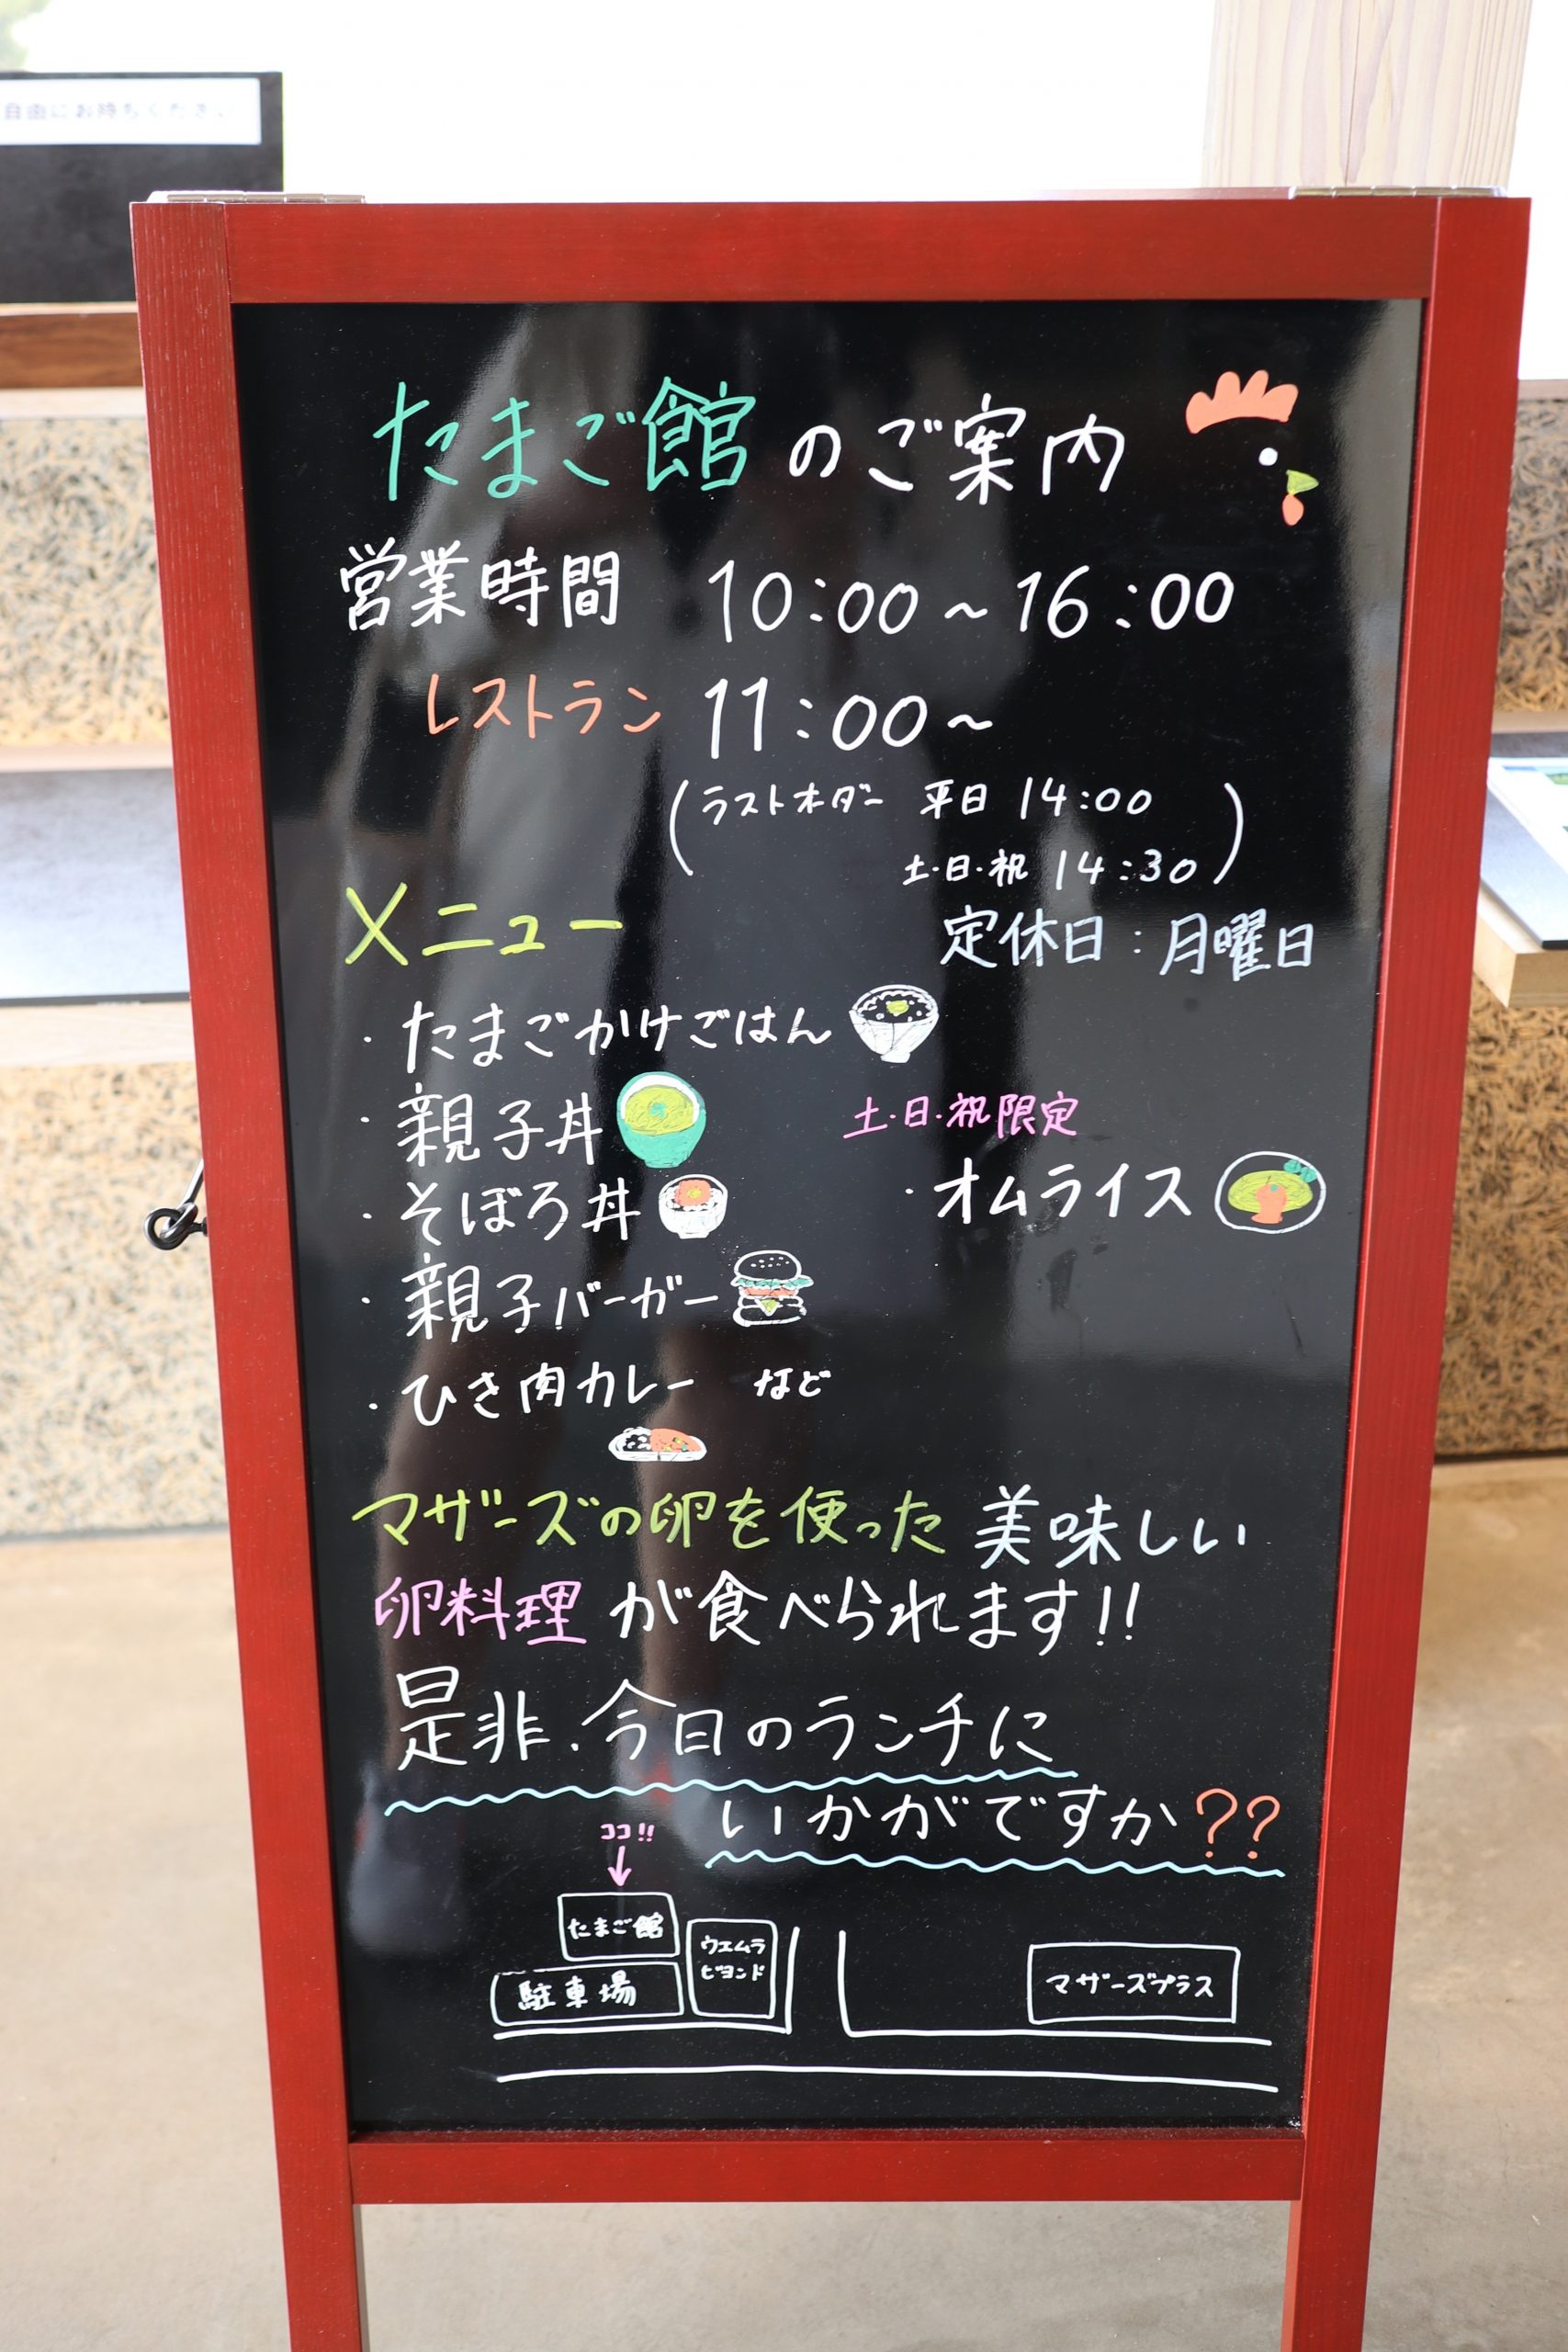 自由にお持ちください
たまご館のご案内
営業時間 10:00～16:00
レストラン 11:00～
(ラストオーダー 平日 14:00
土・日・祝 14:30)
メニュー
定休日:月曜日
・たまごかけごはん
・親子丼
・そぼろ丼
・親子バーガー
・ひき肉カレー など
土・日・祝限定
・オムライス
マザーズの卵を使った美味しい
卵料理が食べられます!!
是非、今日のランチに
いかがですか??
ココ!!
たまご館
ウエムラ
ビヨンド
駐車場
マザーズプラス